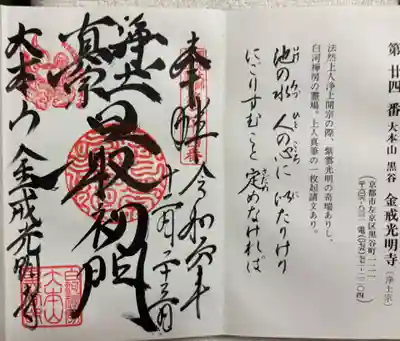 第廿四番 大本山 黒谷 金戒光明寺 (浄土宗)
(京都市左京区黒谷町一二一
法然上人浄上開宗の際、紫雲光明の奇瑞ありし、
白河禅房の霊場。上人真筆の一枚起請文あり。
池の水 人の心に 似たりけり
にごりすむこと 定めなければ
奉拝 令和六年
十一月二十三日
浄土
真宗
最初門
大本山 金戒光明寺